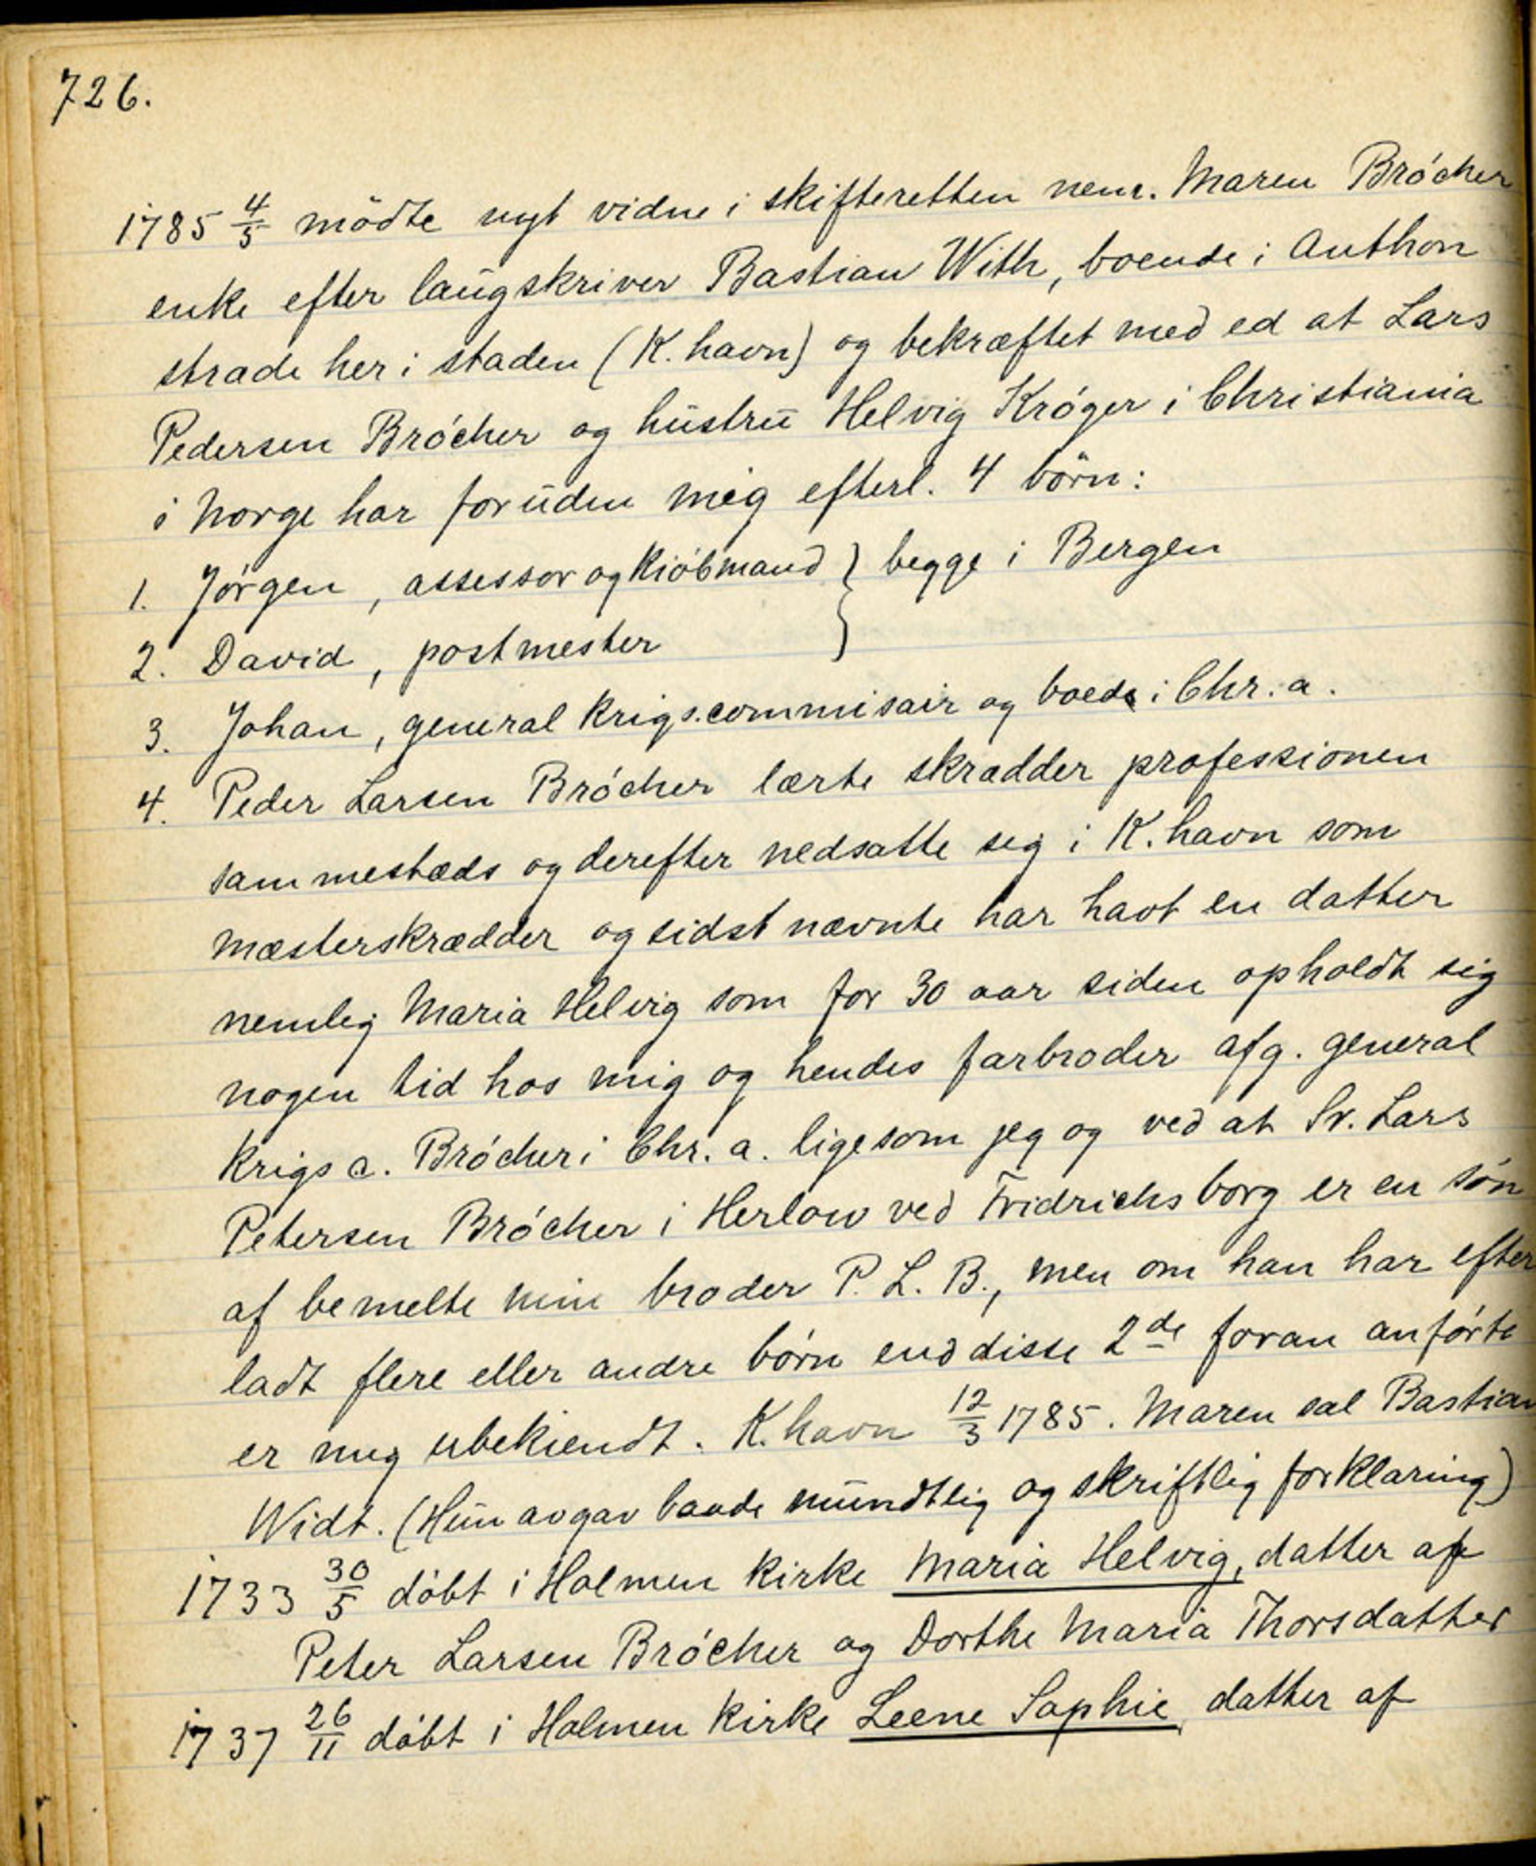 726.
1785 4/5 mödte nyt vidne i skifteretten nem. Maren Brócher
enke efter laŭgskriver Bastian With, boende i Anthon
strade her i staden (K. havn) og bekræftet med ed at Lars
Pedersen Brócher og hŭstrŭ Helvig Króger i Christiania
i Norge har forŭden mig efterl. 4 börn:
1. Jórgen, assessor og kióbmand } begge i Bergen
2. David, postmester
3. Johan, general krigs.commisair og boede i Chr. a.
4. Peder Larsen Brócher lærte skradder professionen
sammestæds og derefter nedsatte sig i K. havn som
mæsterskrædder og sidst nævnte har havt en datter
nemlig Maria Helvig som for 30 aar siden opholdt sig
nogen tid hos mig og hendes farbroder afg. general
krigs c. Brócher i Chr. a. ligesom jeg og ved at Sr. Lars
Petersen Brócher i Herlow ved Fridrichsborg er en són
af bemelte min broder P. L. B., men om han har efter
ladt flere eller andre bórn end disse 2de foran anfórte
er mig ubekiendt. K. havn 12/3 1785. Maren sal Bastian
Widt. (Hŭn avgav baade mŭndtlig og skriftlig forklaring)
1733 30/5 dóbt i Holmen kirke Maria Helvig, datter af
Peter Larsen Brócher og Dorthe Maria Thorsdatter
1737 26/11 dóbt i Holmen kirke Leene Sophie, datter af